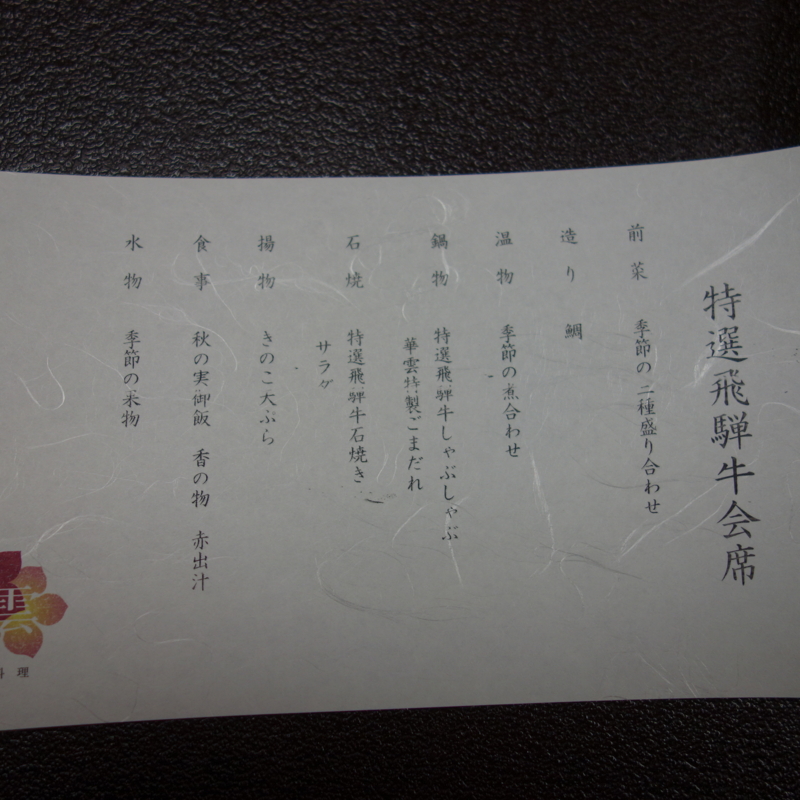 特選飛騨牛会席
前菜 季節の三種盛り合わせ
造り 鯛
温物 季節の煮合わせ
鍋物 特選飛騨牛しゃぶしゃぶ
華雲特製ごまだれ
石焼 特選飛騨牛石焼き
サラダ
揚物 きのこ天ぷら
食事 秋の実御飯 香の物 赤出汁
水物 季節の果物
料理